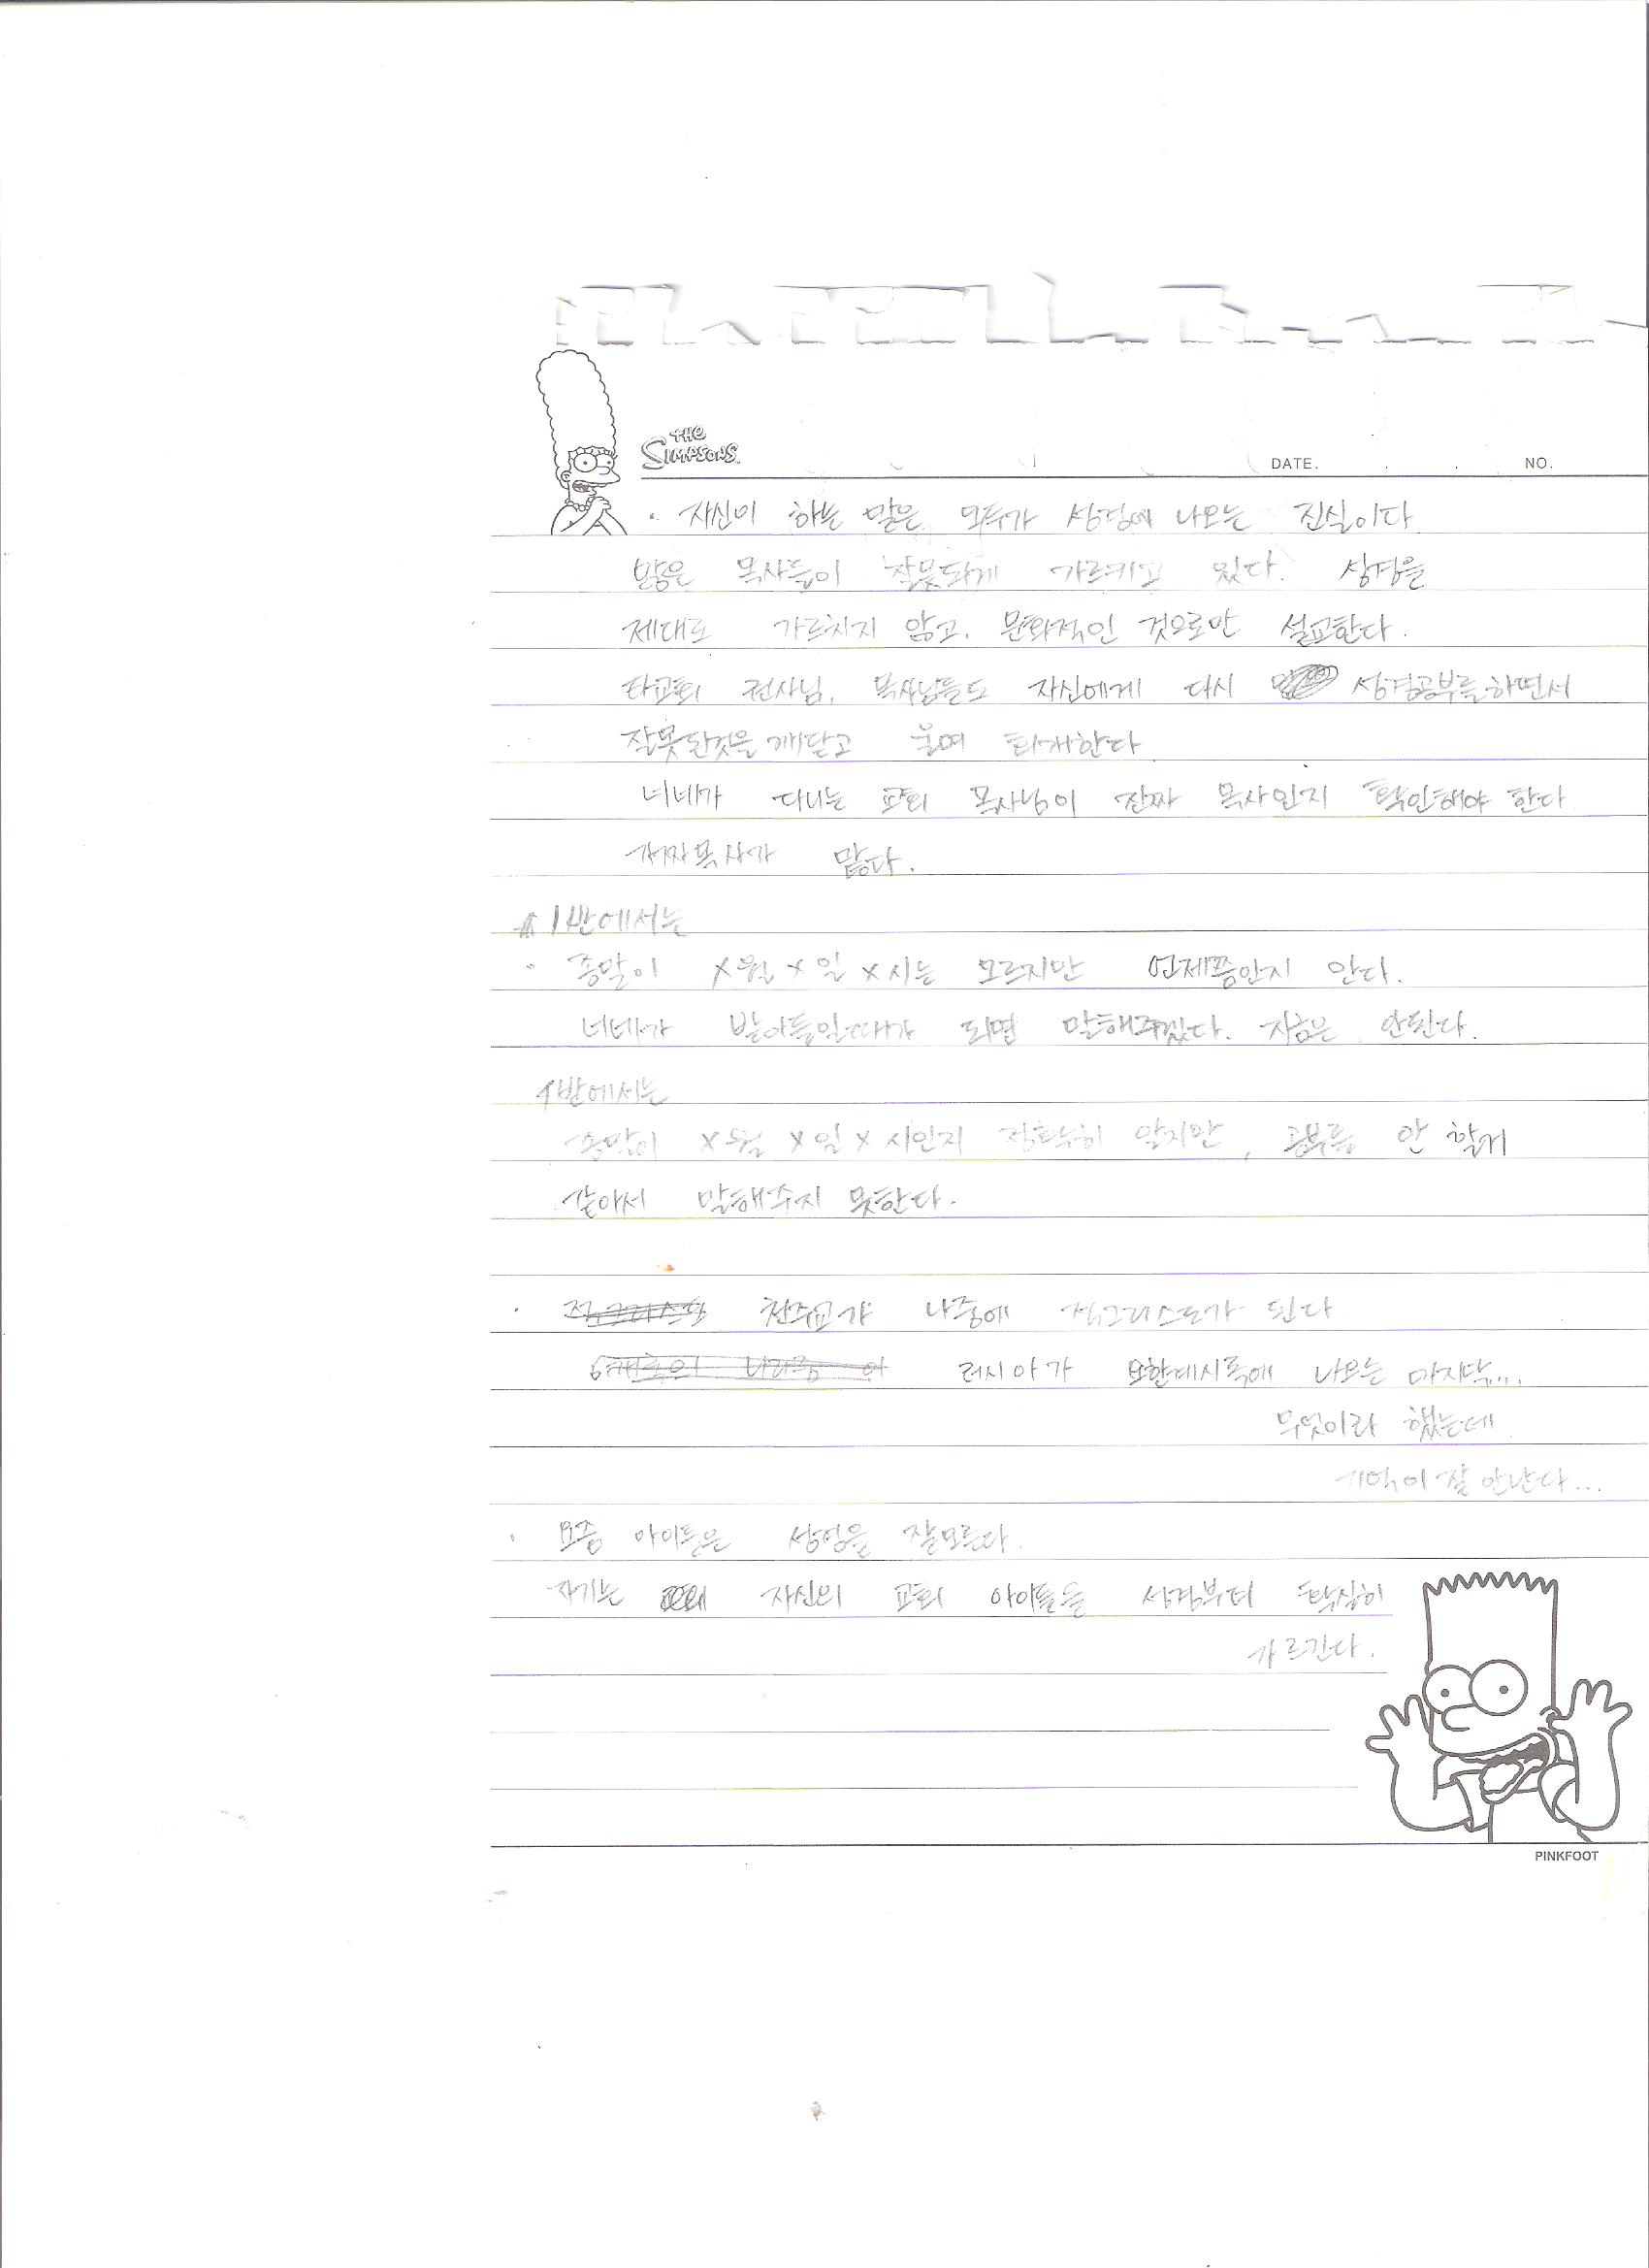 THE
SIMPSONS
DATE. . . NO.
· 자신이 하는 말은 모두가 성경에 나오는 진실이다.
많은 목사들이 잘못되게 가르키고 있다. 성경을
제대로 가르치지 않고, 문화적인 것으로만 설교한다.
타교회 전사님, 목사님들도 자신에게 다시 성경공부를하면서
잘못된것을 깨닫고 울며 회개한다
너네가 다니는 교회 목사님이 진짜 목사인지 확인해야 한다
가짜목사가 많다.
1반에서는
· 종말이 x월 x일 x시는 모르지만 언제쯤인지 안다.
너네가 받아들일때가 되면 말해주겠다. 지금은 안된다.
1반에서는
종말이 x월 x일 x시인지 정확히 알지만, 공부를 안 할거
같아서 말해주지 못한다.
· 적그리스도 천주교가 나중에 적그리스도가 된다
러시아가 또한계시록에 나오는 마지막...
무엇이라 했는데
기억이 잘 안난다...
· 요즘 아이들은 성경을 잘모른다.
자기는 자신의 교회 아이들을 성경부터 확실히
가르킨다.
PINKFOOT